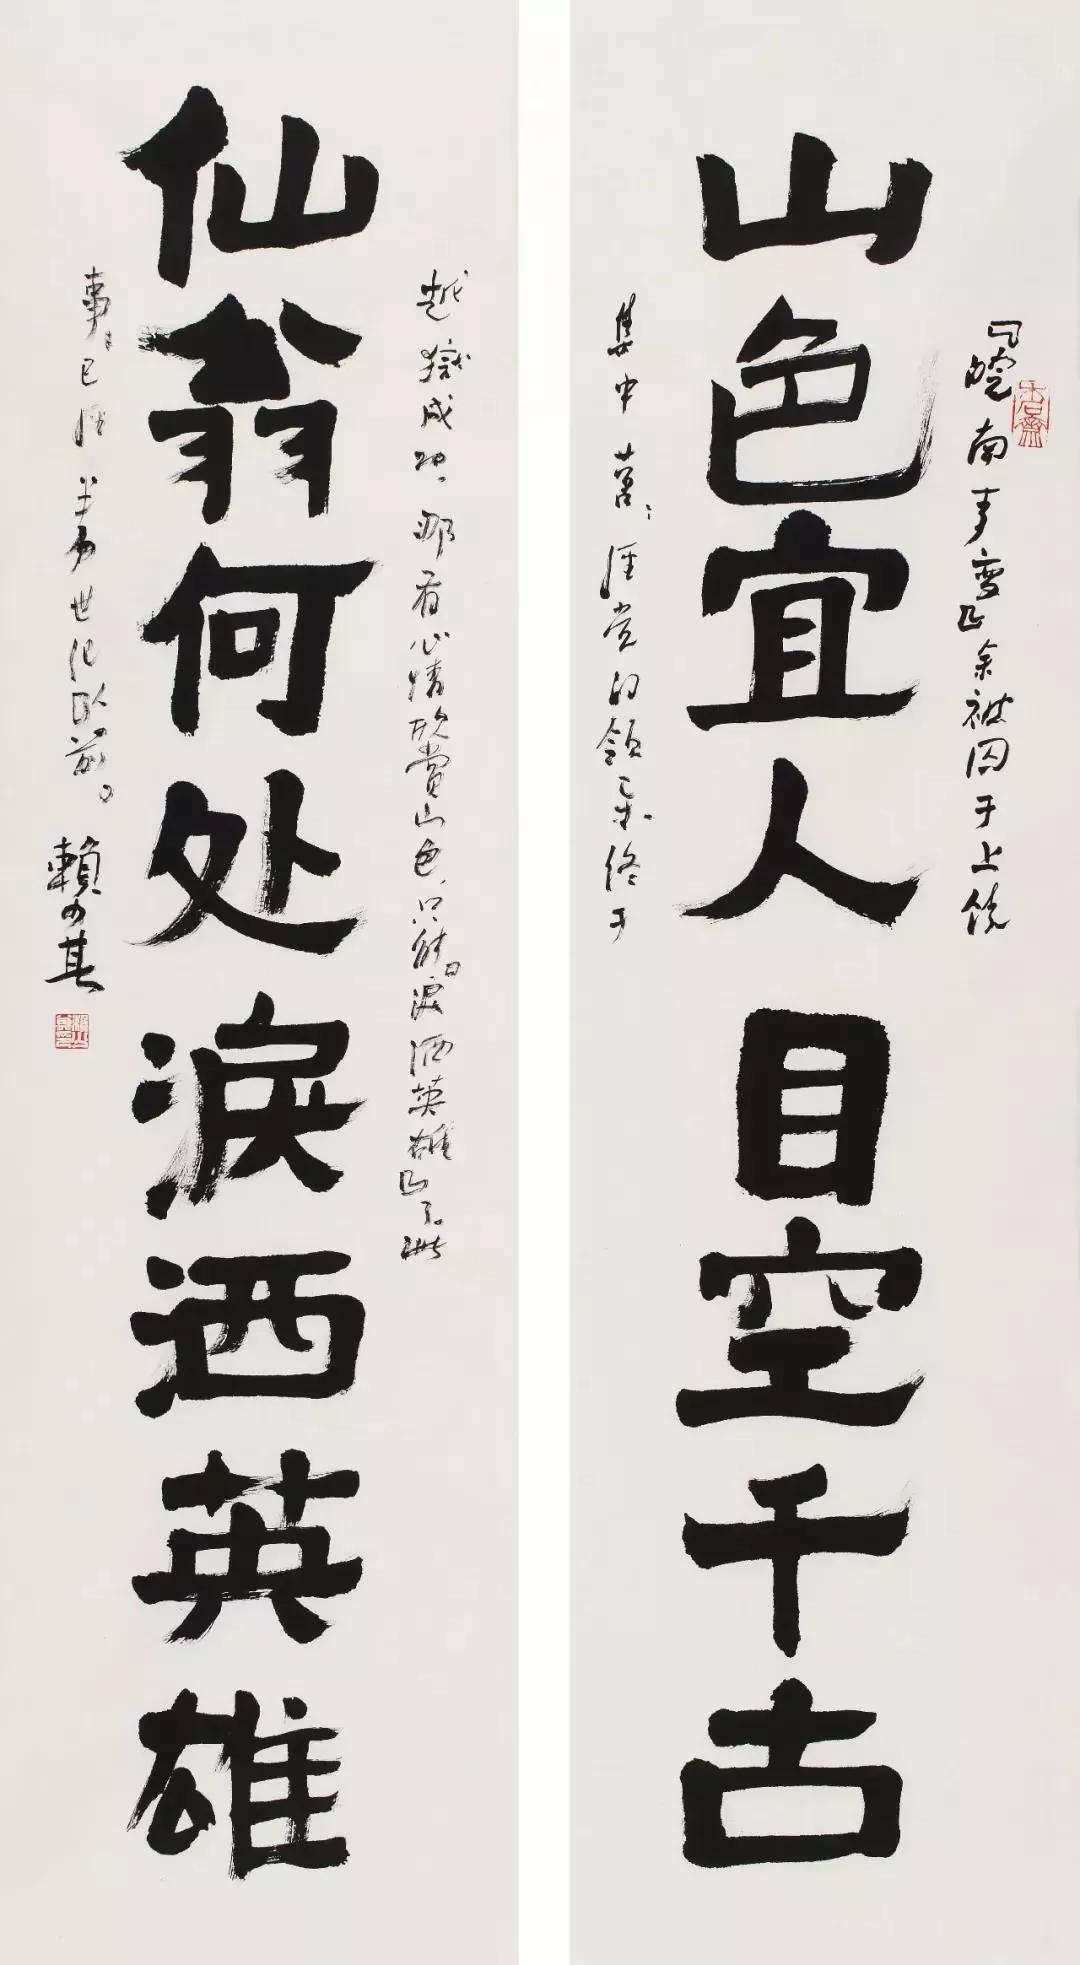 『皖南事变』余被囚于上饶
山色宜人目空千古
集中营；党的领导终于
越獄成功，那有心情欣赏山色，只能『淚洒英雄』了。此
仙翁何处淚洒英雄
事，已经世纪以前。
賴少其